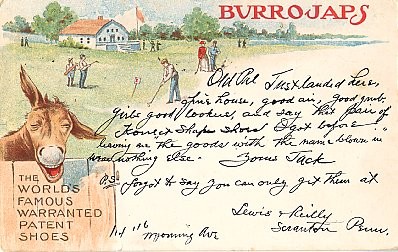 BURROJAPS
Old Pal Just landed here,
fine house, good air, good grub.
Girls good lookers, and say this pair of
Korrect Shape Shoes I got before
leaving are the goods with the name blown in
wear nothing else. Yours Jack
P.S. forgot to say you can only get them at
Lewis & Reilly
114 116 Wyoming Ave Scranton Penn.
THE
WORLD'S
FAMOUS
WARRANTED
PATENT
SHOES